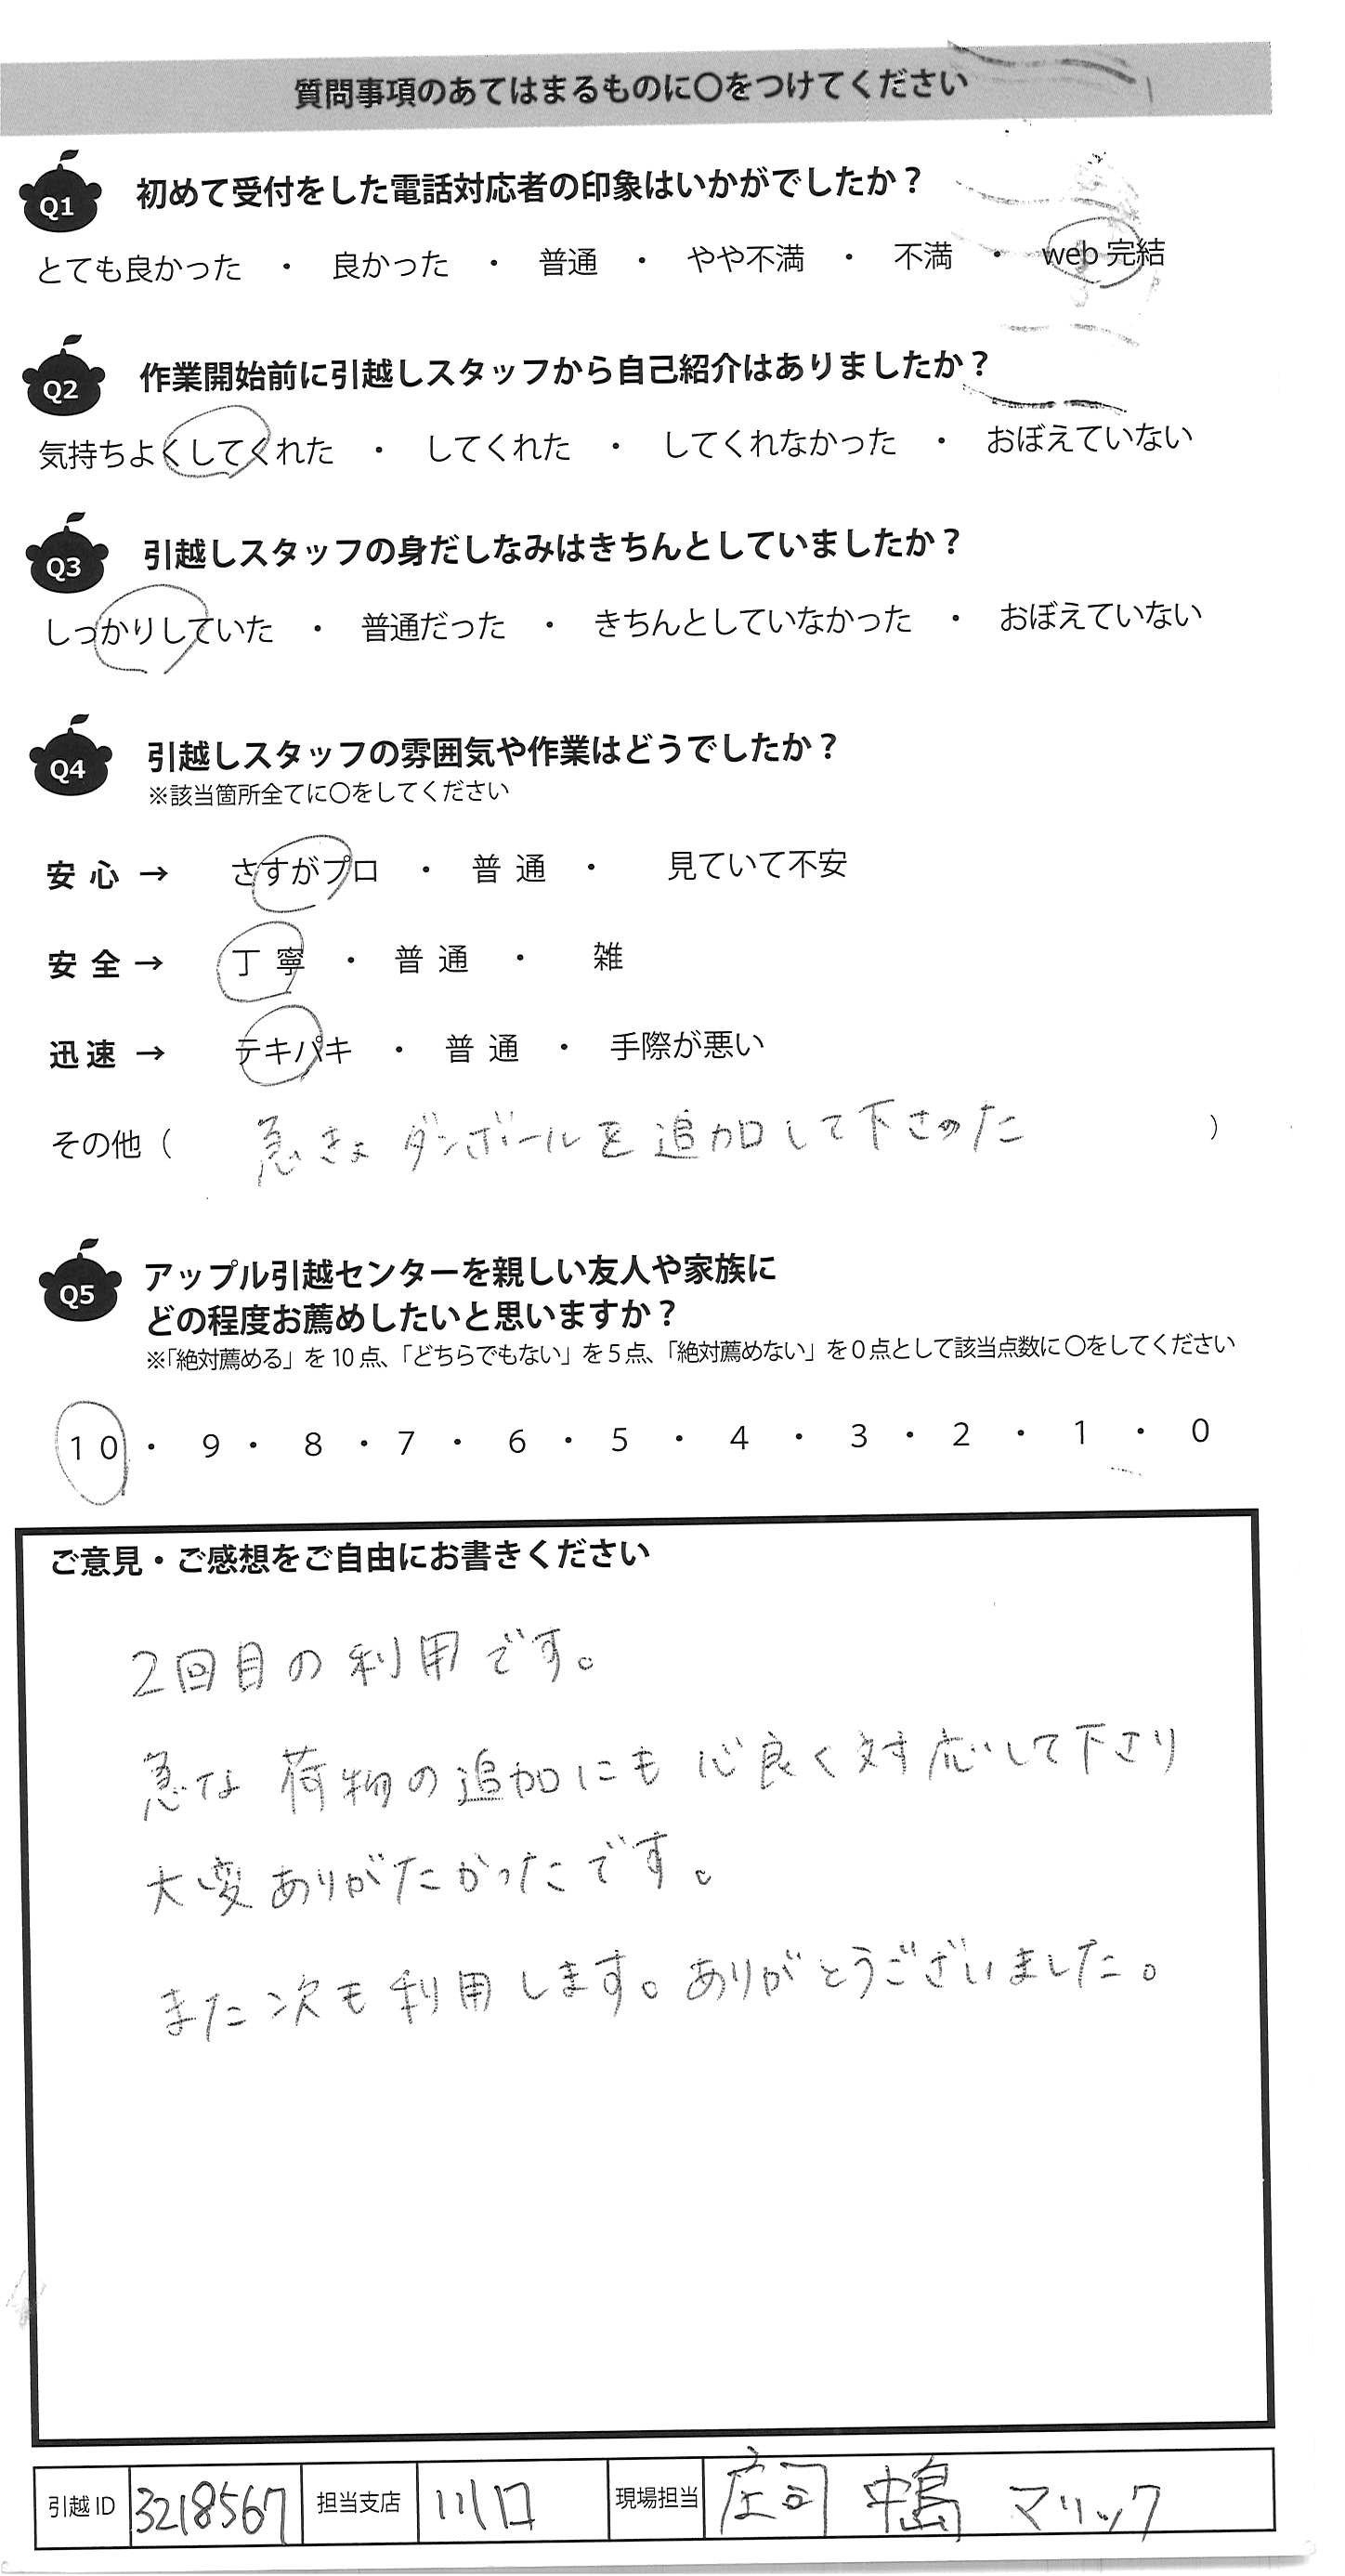 質問事項のあてはまるものに〇をつけてください
Q1 初めて受付をした電話対応者の印象はいかがでしたか？
とても良かった ・ 良かった ・ 普通 ・ やや不満 ・ 不満 ・ web完結
Q2 作業開始前に引越しスタッフから自己紹介はありましたか？
気持ちよくしてくれた ・ してくれた ・ してくれなかった ・ おぼえていない
Q3 引越しスタッフの身だしなみはきちんとしていましたか？
しっかりしていた ・ 普通だった ・ きちんとしていなかった ・ おぼえていない
Q4 引越しスタッフの雰囲気や作業はどうでしたか？
※該当箇所全てに〇をしてください
安心 → さすがプロ ・ 普通 ・ 見ていて不安
安全 → 丁寧 ・ 普通 ・ 雑
迅速 → テキパキ ・ 普通 ・ 手際が悪い
その他（ 急きょ ダンボールを追加して下さった ）
Q5 アップル引越センターを親しい友人や家族に
どの程度お薦めしたいと思いますか？
※「絶対薦める」を10点、「どちらでもない」を5点、「絶対薦めない」を0点として該当点数に〇をしてください
10 ・ 9 ・ 8 ・ 7 ・ 6 ・ 5 ・ 4 ・ 3 ・ 2 ・ 1 ・ 0
ご意見・ご感想をご自由にお書きください
2回目の利用です。
急な荷物の追加にも心良く対応して下さり
大変ありがたかったです。
また次も利用します。ありがとうございました。
引越ID 3218567 担当支店 川口 現場担当 庄司 中島 マリック